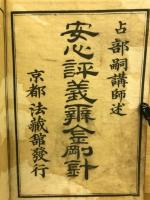 占部嗣講師述
安心評義弁金剛針
京都 法藏舘發行